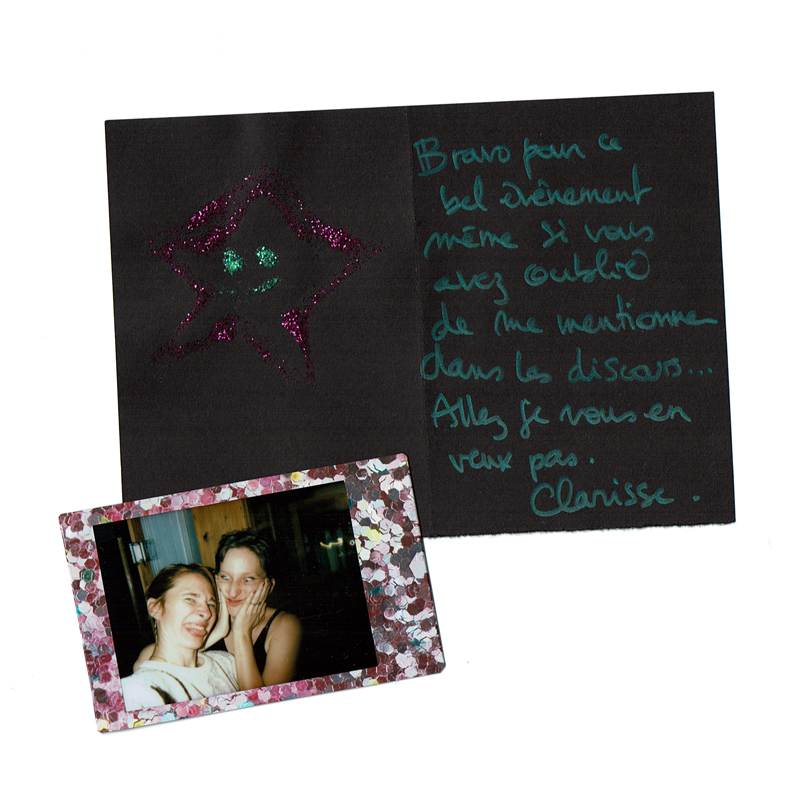 Bravo pour ce
bel évènement
même si vous
avez oublié
de me mentionner
dans les discours...
Allez je vous en
veux pas.
Clarisse.